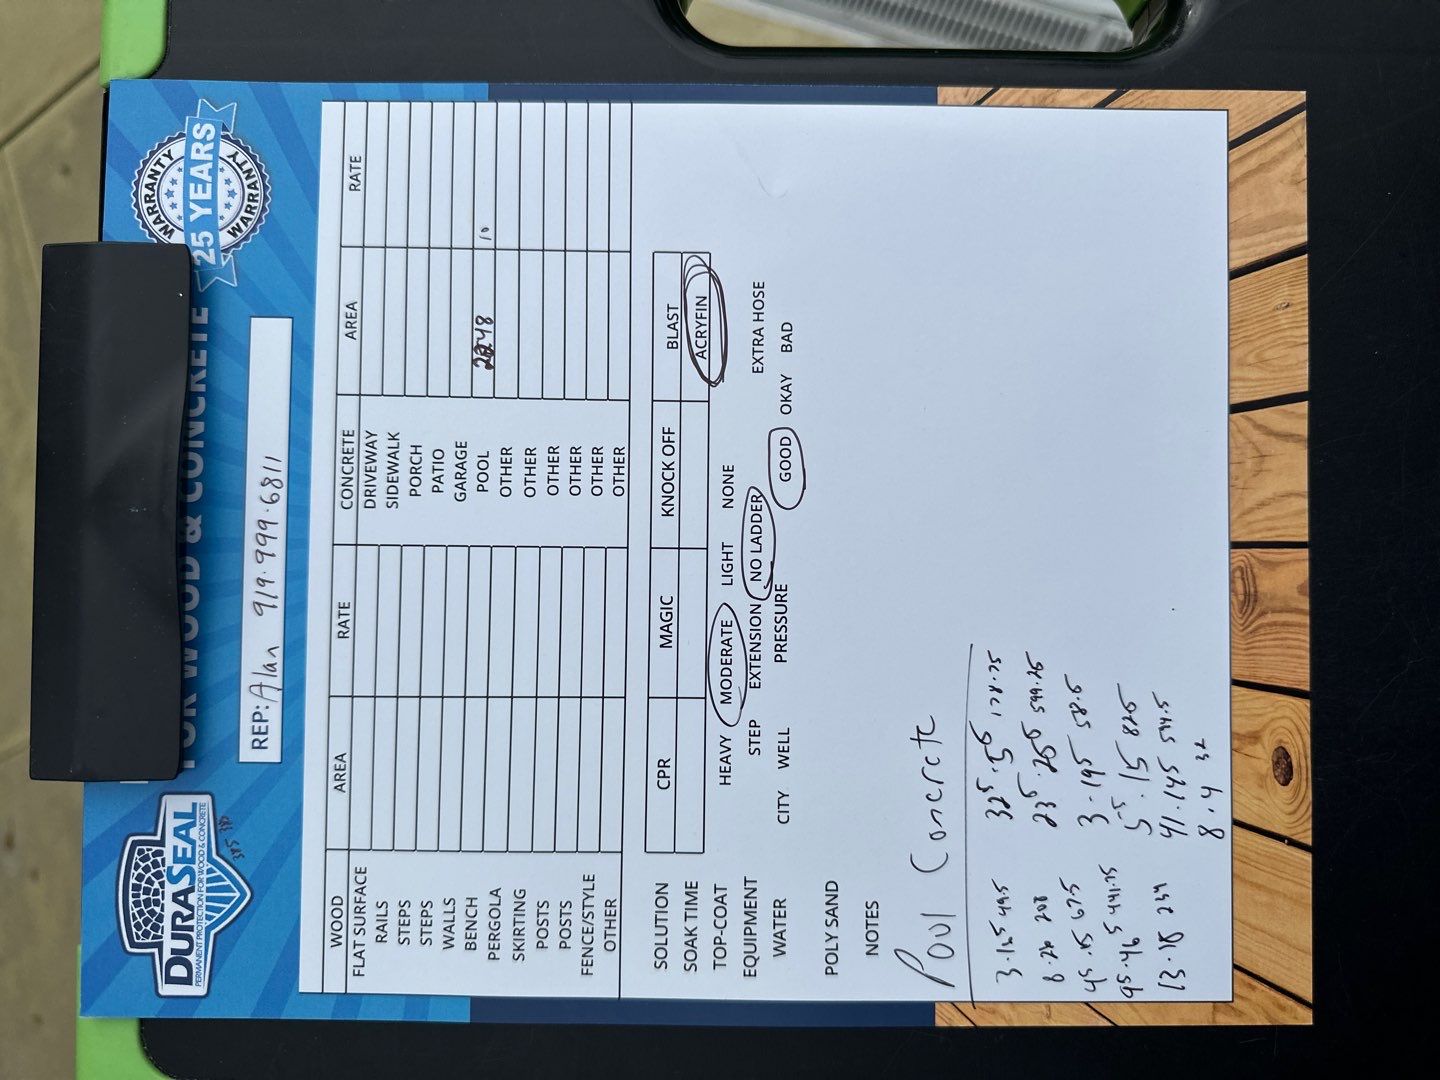 DURASEAL
PERMANENT PROTECTION FOR WOOD & CONCRETE
FOR WOOD & CONCRETE
WARRANTY
25 YEARS
WARRANTY
REP: Alan 919.999.6811
WOOD AREA RATE CONCRETE AREA RATE
FLAT SURFACE DRIVEWAY
RAILS SIDEWALK
STEPS PORCH
STEPS PATIO
WALLS GARAGE
BENCH POOL 2248 10
PERGOLA OTHER
SKIRTING OTHER
POSTS OTHER
POSTS OTHER
FENCE/STYLE OTHER
OTHER OTHER
SOLUTION CPR MAGIC KNOCK OFF BLAST
SOAK TIME ACRYFIN
TOP-COAT HEAVY MODERATE LIGHT NONE
EQUIPMENT STEP EXTENSION NO LADDER EXTRA HOSE
WATER CITY WELL PRESSURE GOOD OKAY BAD
POLY SAND
NOTES
Pool Concrete
3.16⁵ 49.5 32⁵.5⁵ 178.75
8.26 208 23⁵.25⁵ 599.25
45.15 67.5 3.195 58.5
95.46⁵ 441.75 5⁵.15 82.5
13.18 234 41.145 594.5
8.4 32